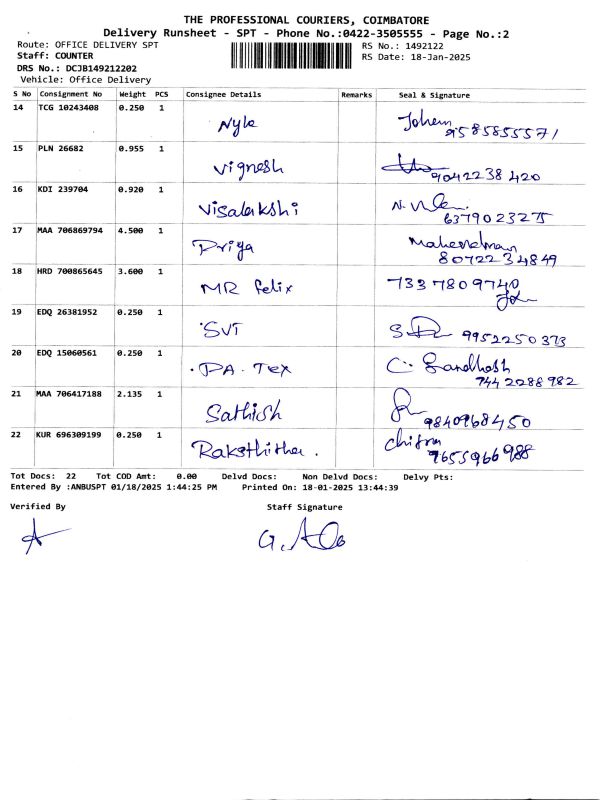 THE PROFESSIONAL COURIERS, COIMBATORE
Delivery Runsheet - SPT - Phone No.:0422-3505555 - Page No.:2
Route: OFFICE DELIVERY SPT RS No.: 1492122
Staff: COUNTER RS Date: 18-Jan-2025
DRS No.: DCJB149212202
Vehicle: Office Delivery
S No Consignment No Weight PCS Consignee Details Remarks Seal & Signature
14 TCG 10243408 0.250 1 Nyle 9585855571
15 PLN 26682 0.955 1 Vignesh 9042238420
16 KDI 239704 0.920 1 Visalakshi 6379023275
17 MAA 706869794 4.500 1 Priya 8072234849
18 HRD 700865645 3.600 1 MR felix 7337809740
19 EDQ 26381952 0.250 1 SVT 9952250373
20 EDQ 15060561 0.250 1 PA. Tex C. Sandhosh
7442288982
21 MAA 706417188 2.135 1 Sathish 9840968450
22 KUR 696309199 0.250 1 Raksthitha. Chitra
9655966988
Tot Docs: 22 Tot COD Amt: 0.00 Delvd Docs: Non Delvd Docs: Delvy Pts:
Entered By :ANBUSPT 01/18/2025 1:44:25 PM Printed On: 18-01-2025 13:44:39
Verified By Staff Signature